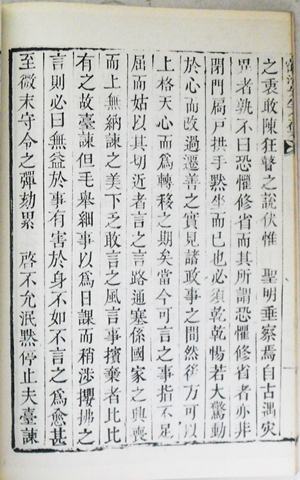 之衷敢陳狂瞽之說伏惟　聖明垂察焉自古遇灾
異者孰不曰恐懼修省而其所謂恐懼修省者亦非
閉門扃戶拱手黙坐而已也必須乾乾惕若大驚動
於心而改過遷善之實見諸政事之間然後方可以
上格天心而爲轉移之期矣當今可言之事指不足
屈而姑以其切近者言之言路通塞係國家之興喪
而上無納諫之美下乏敢言之風言事擯棄者比比
有之故臺諫但毛擧細事以爲日課而稍涉攖拂之
言則必曰無益於事有害於身不如不言之爲愈甚
至微末守令之彈劾累　啓不允泯黙停止夫臺諫